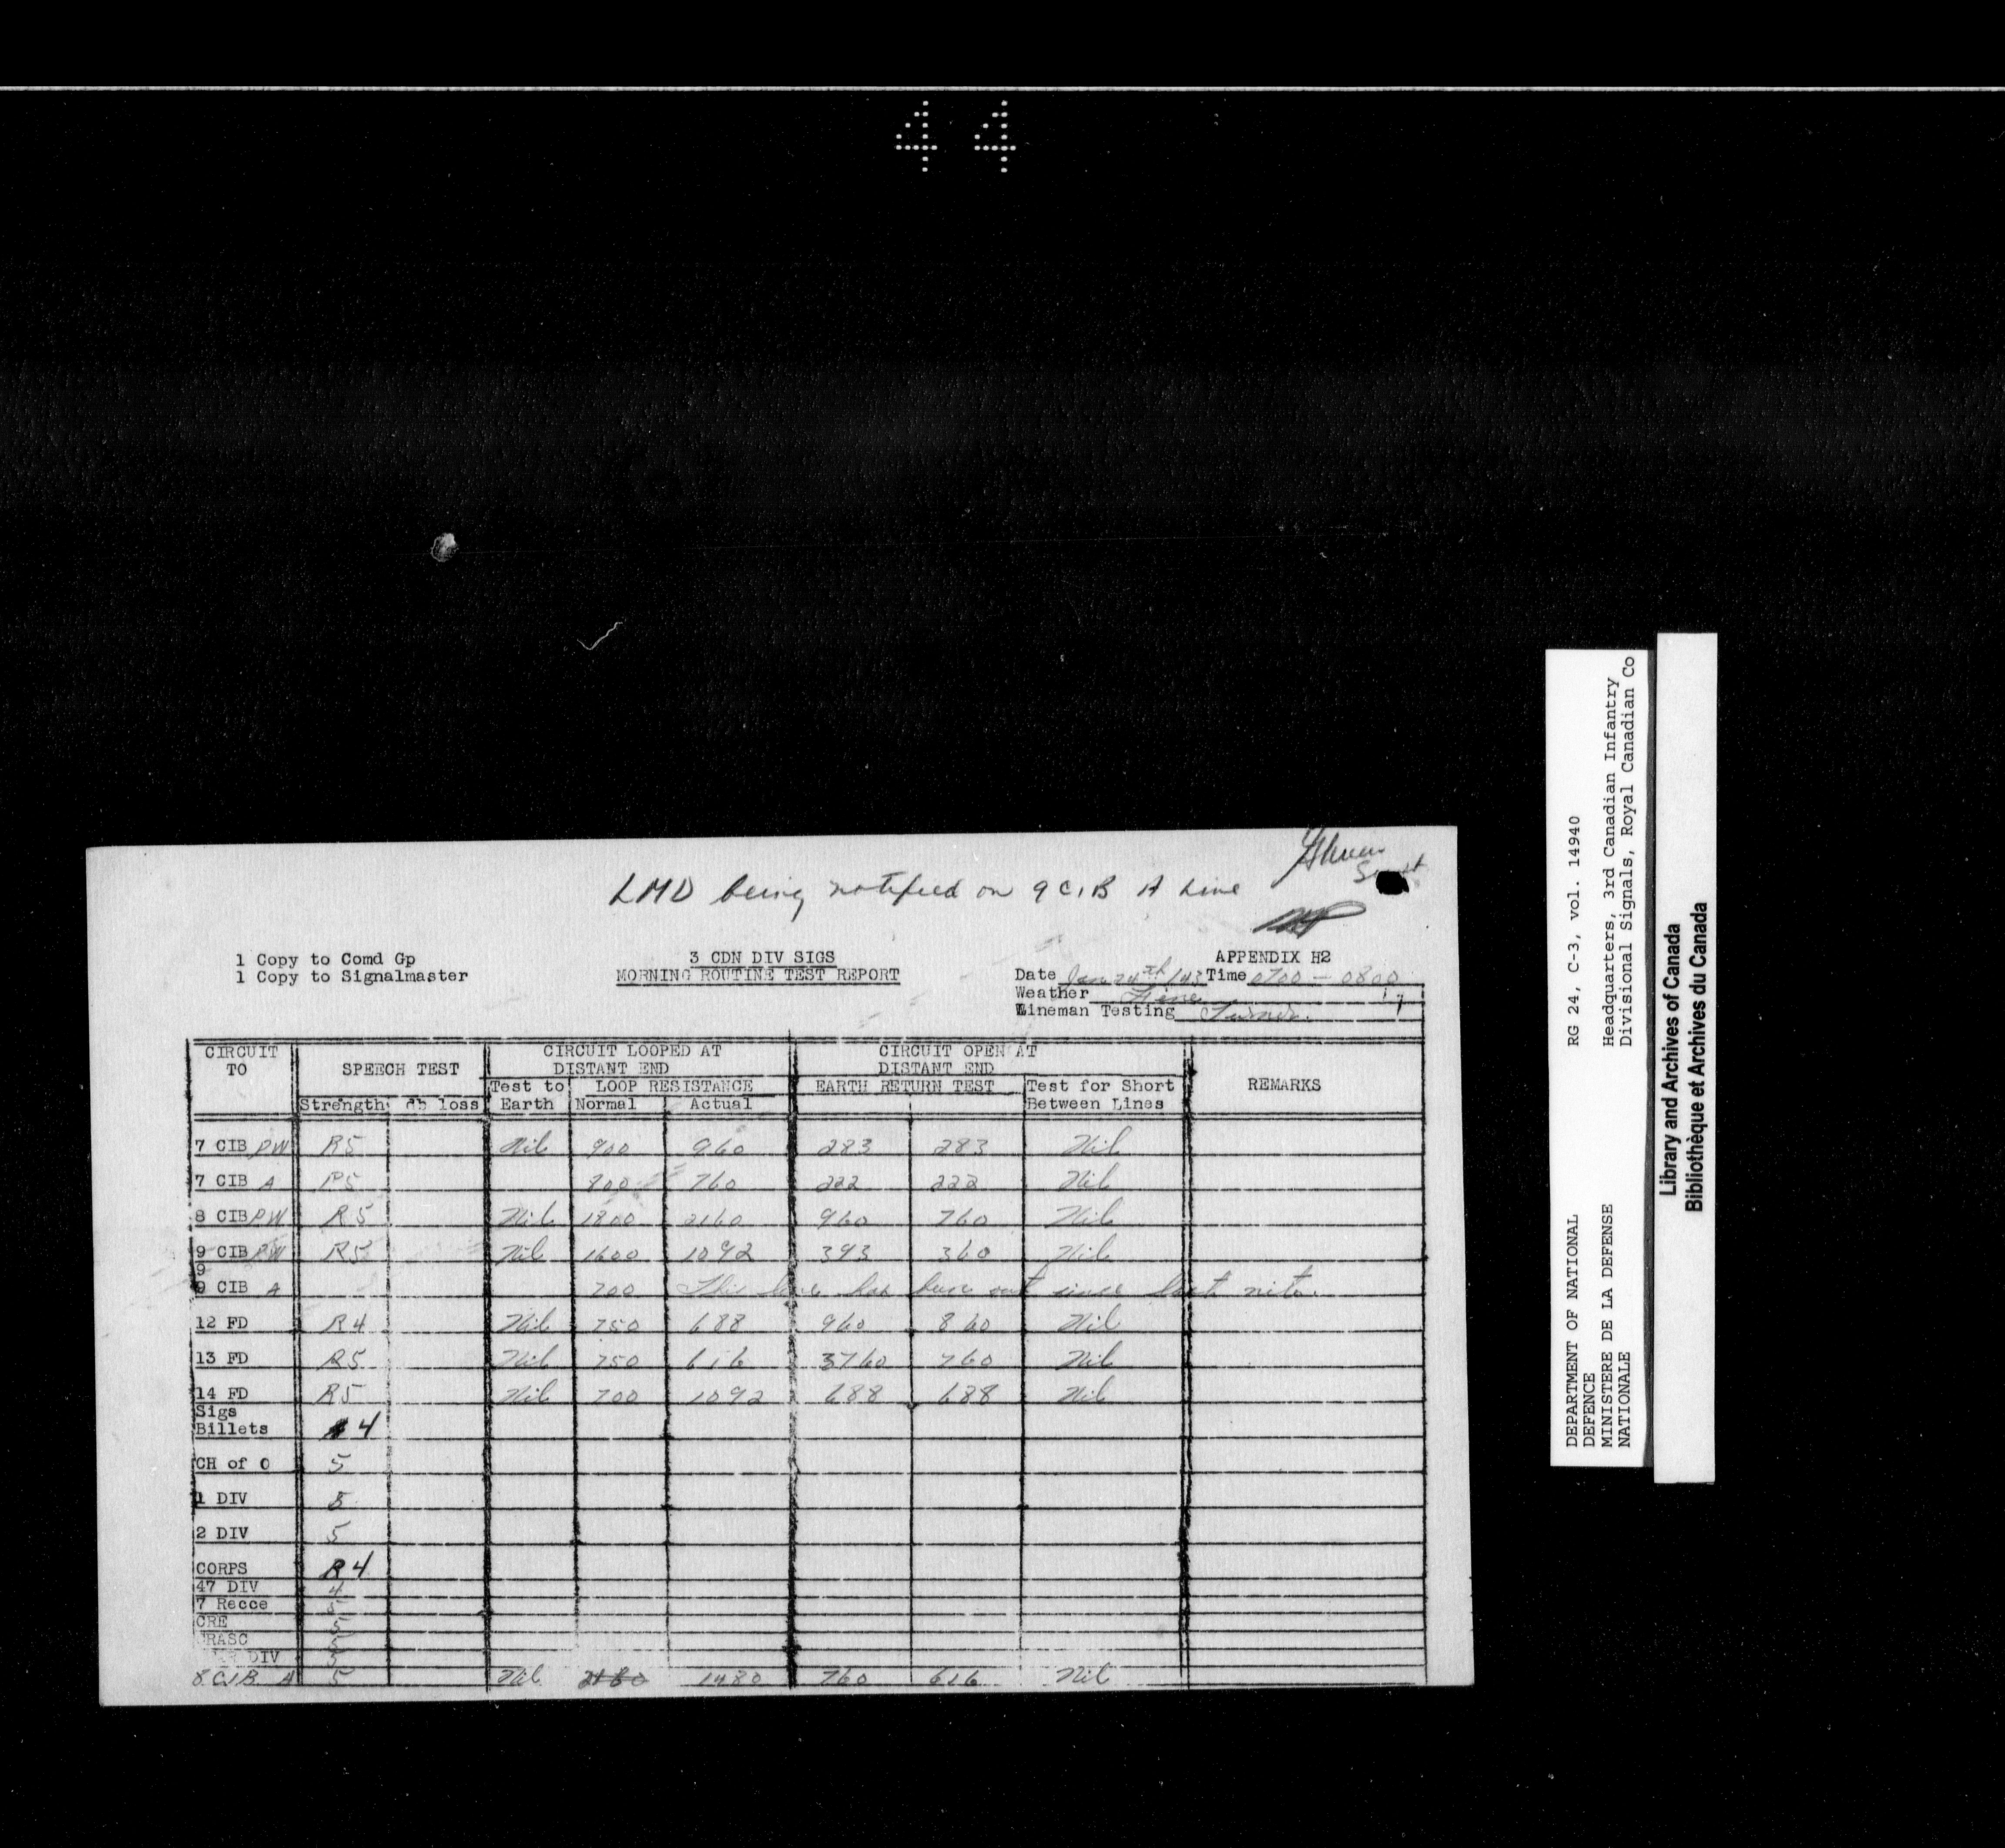 44
LMD being notified on 9 C.I.B A Line
1 Copy to Comd Gp
1 Copy to Signalmaster
3 CDN DIV SIGS
MORNING ROUTINE TEST REPORT
APPENDIX H2
Date Jan 24th/43 Time 0700 - 0800
Weather Fine
Lineman Testing Turner.
CIRCUIT TO SPEECH TEST CIRCUIT LOOPED AT DISTANT END CIRCUIT OPEN AT DISTANT END REMARKS
Test to Earth LOOP RESISTANCE EARTH RETURN TEST Test for Short Between Lines
Strength db loss Normal Actual
7 CIB PW R5 Nil 900 960 283 283 Nil
7 CIB A R5 800 760 222 222 Nil
8 CIB PW R5 Nil 1800 2160 960 760 Nil
9 CIB PW R5 Nil 1600 1092 393 360 Nil
9
9 CIB A 700 This line has been out since last nite.
12 FD R4 Nil 750 688 960 860 Nil
13 FD R5 Nil 750 616 3760 760 Nil
14 FD R5 Nil 700 1092 688 688 Nil
Sigs
Billets 4
CH of O 5
1 DIV 5
2 DIV 5
CORPS R4
47 DIV 4
7 Recce 5
CRE 5
RASC 5
DIV 5
8 CIB A 5 Nil 2180 1480 760 616 Nil
DEPARTMENT OF NATIONAL DEFENCE
MINISTERE DE LA DEFENSE NATIONALE
RG 24, C-3, vol. 14940
Headquarters, 3rd Canadian Infantry
Divisional Signals, Royal Canadian Co
Library and Archives of Canada
Bibliothèque et Archives du Canada